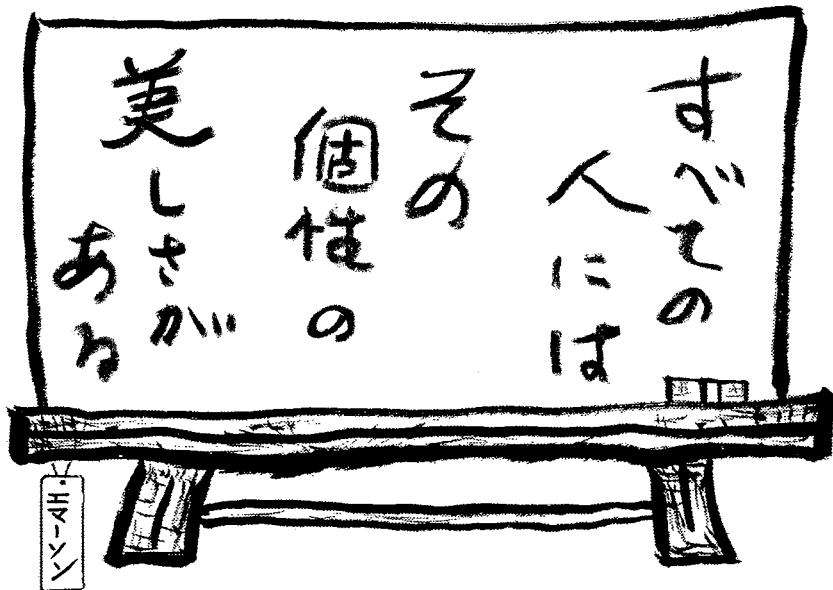 すべての
人には
その
個性の
美しさが
ある
エマーソン